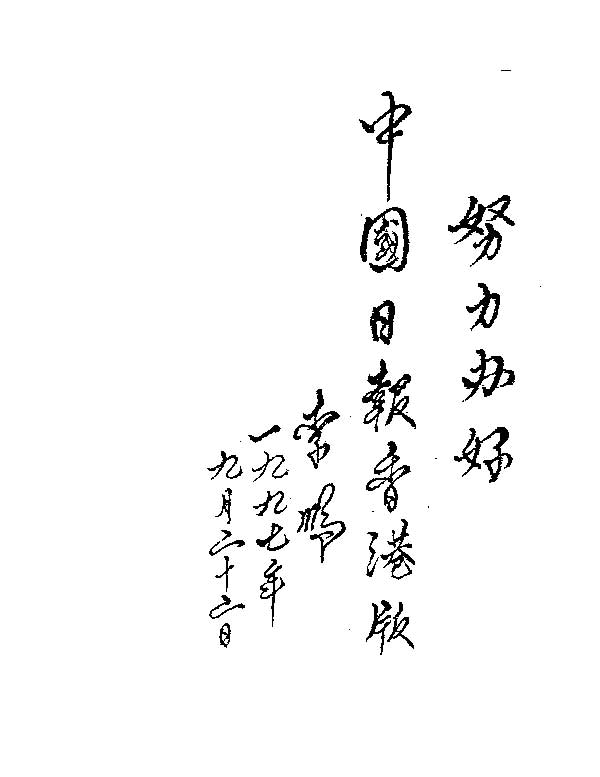 努力办好
中國日報香港版
李鹏
一九九七年
九月二十二日